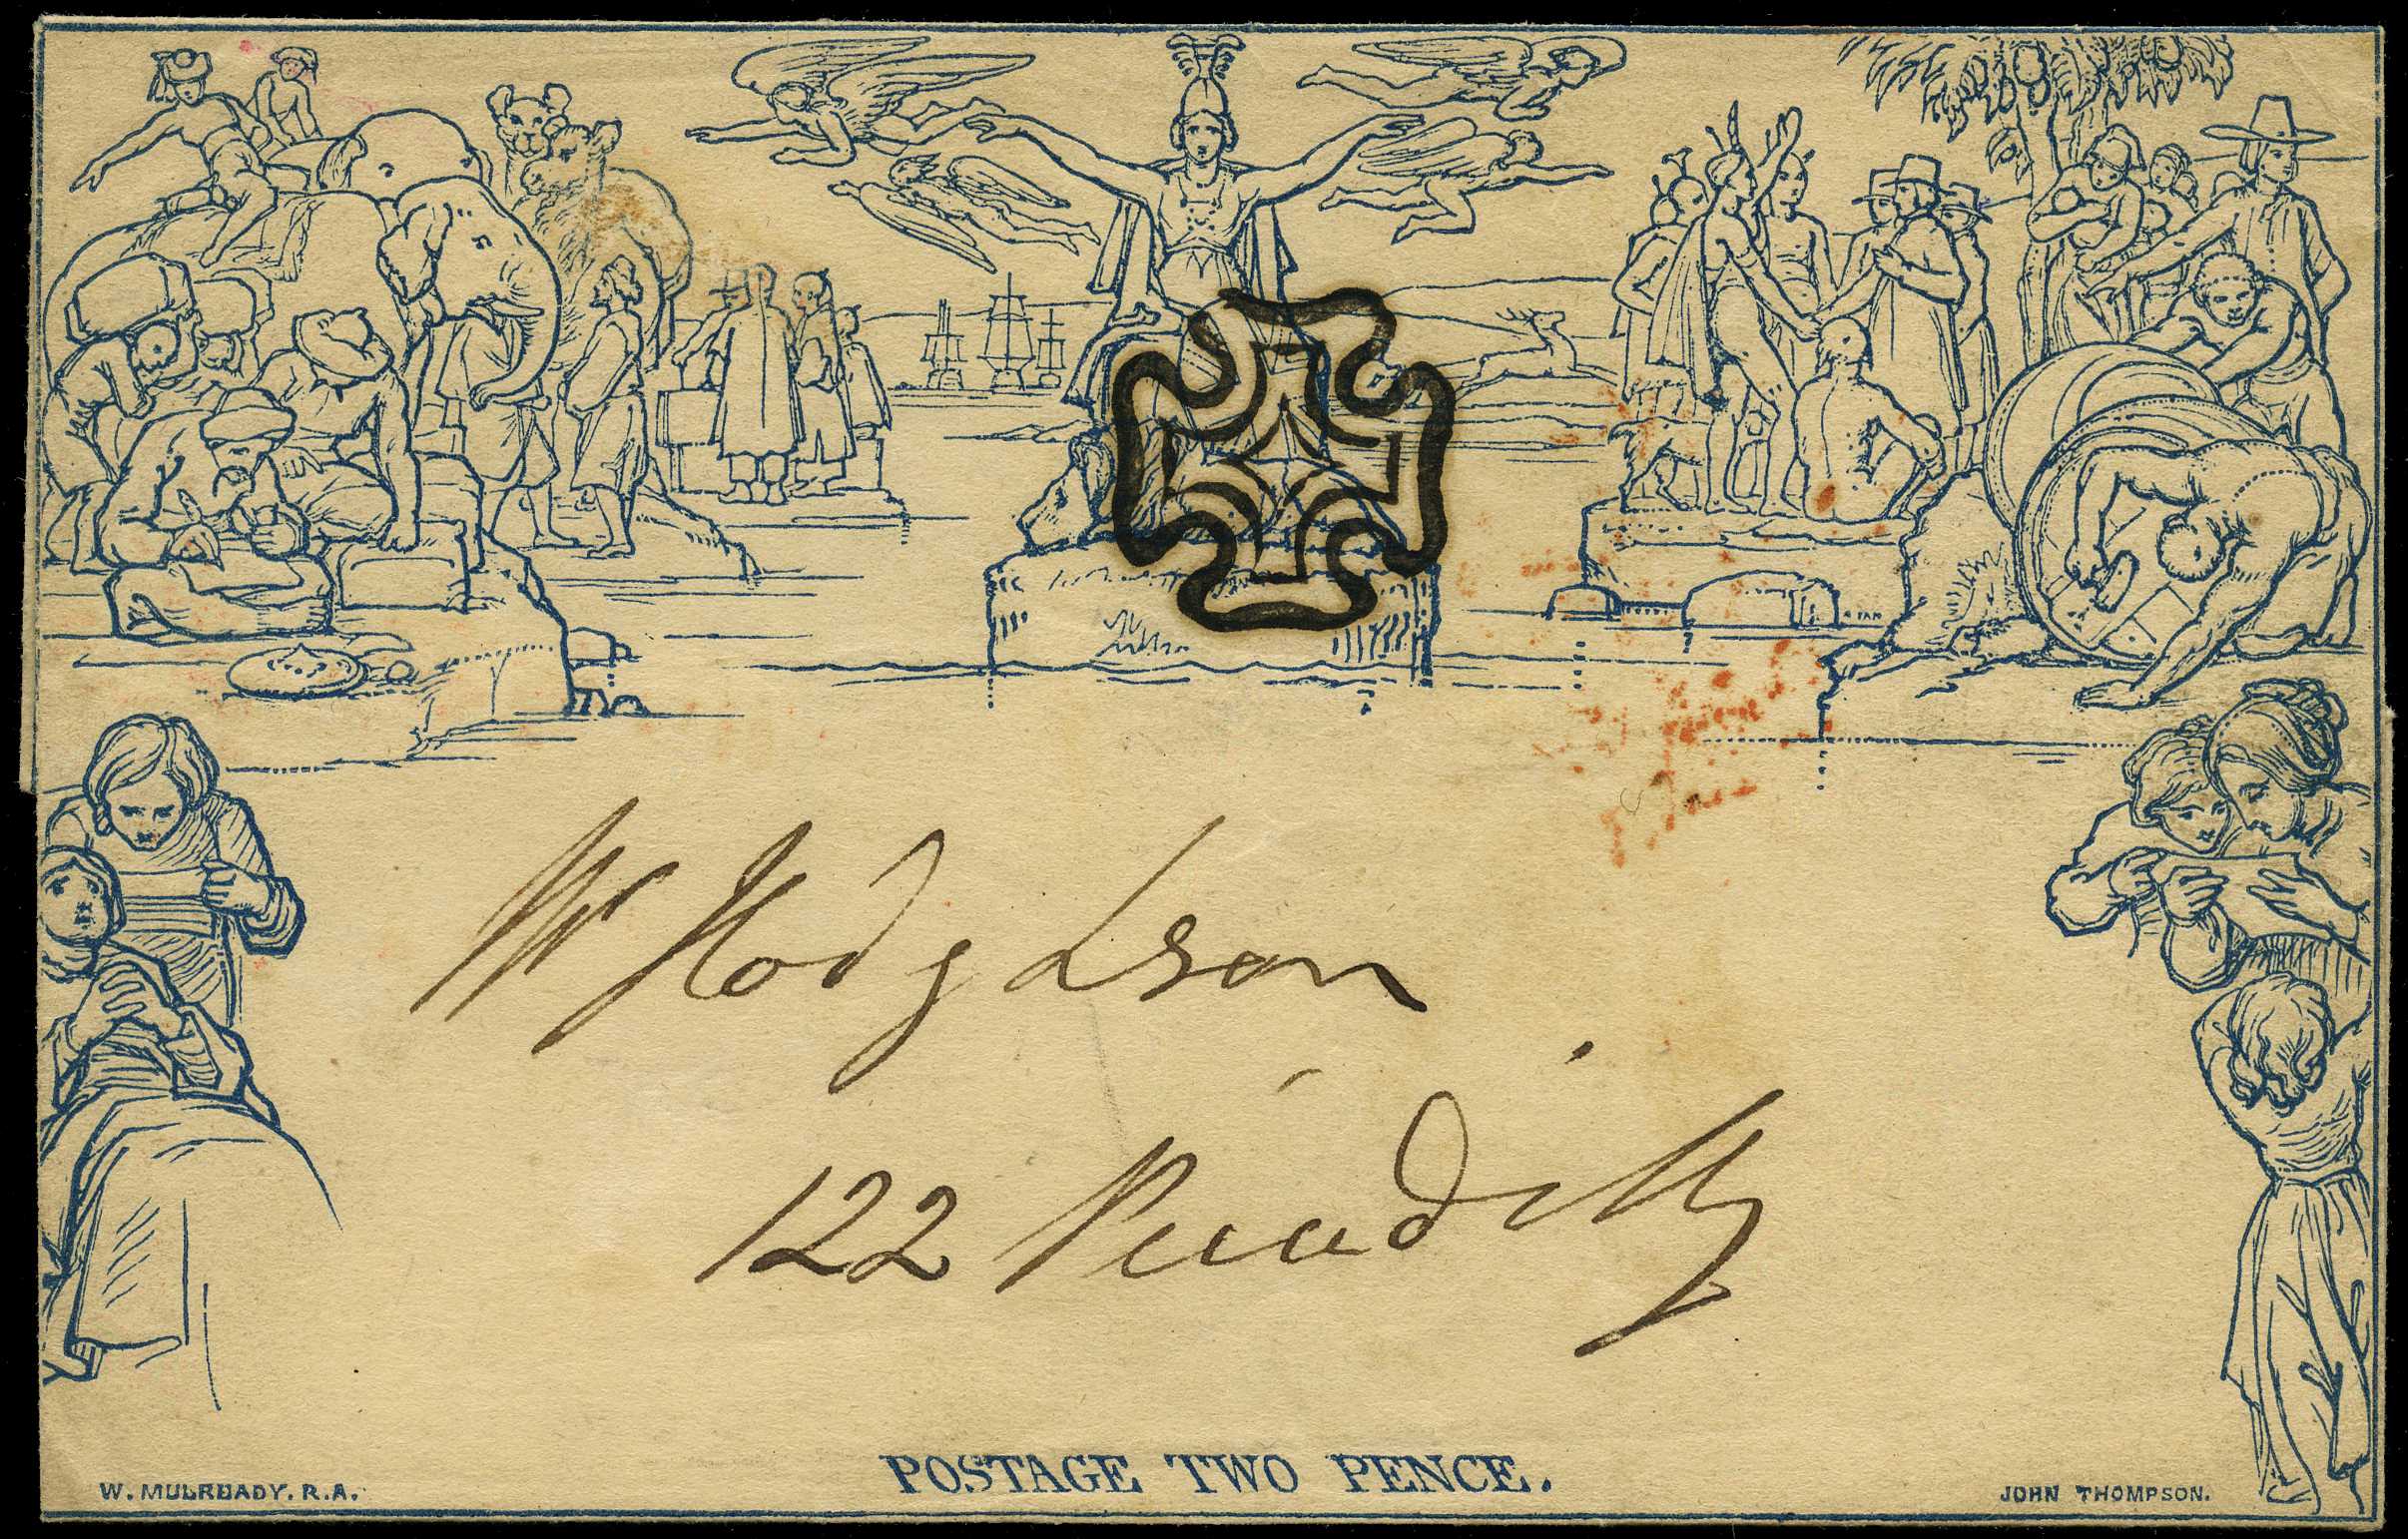 Mr Hodgdson
122 Piccadilly
POSTAGE TWO PENCE.
W. MULREADY. R.A.
JOHN THOMPSON.